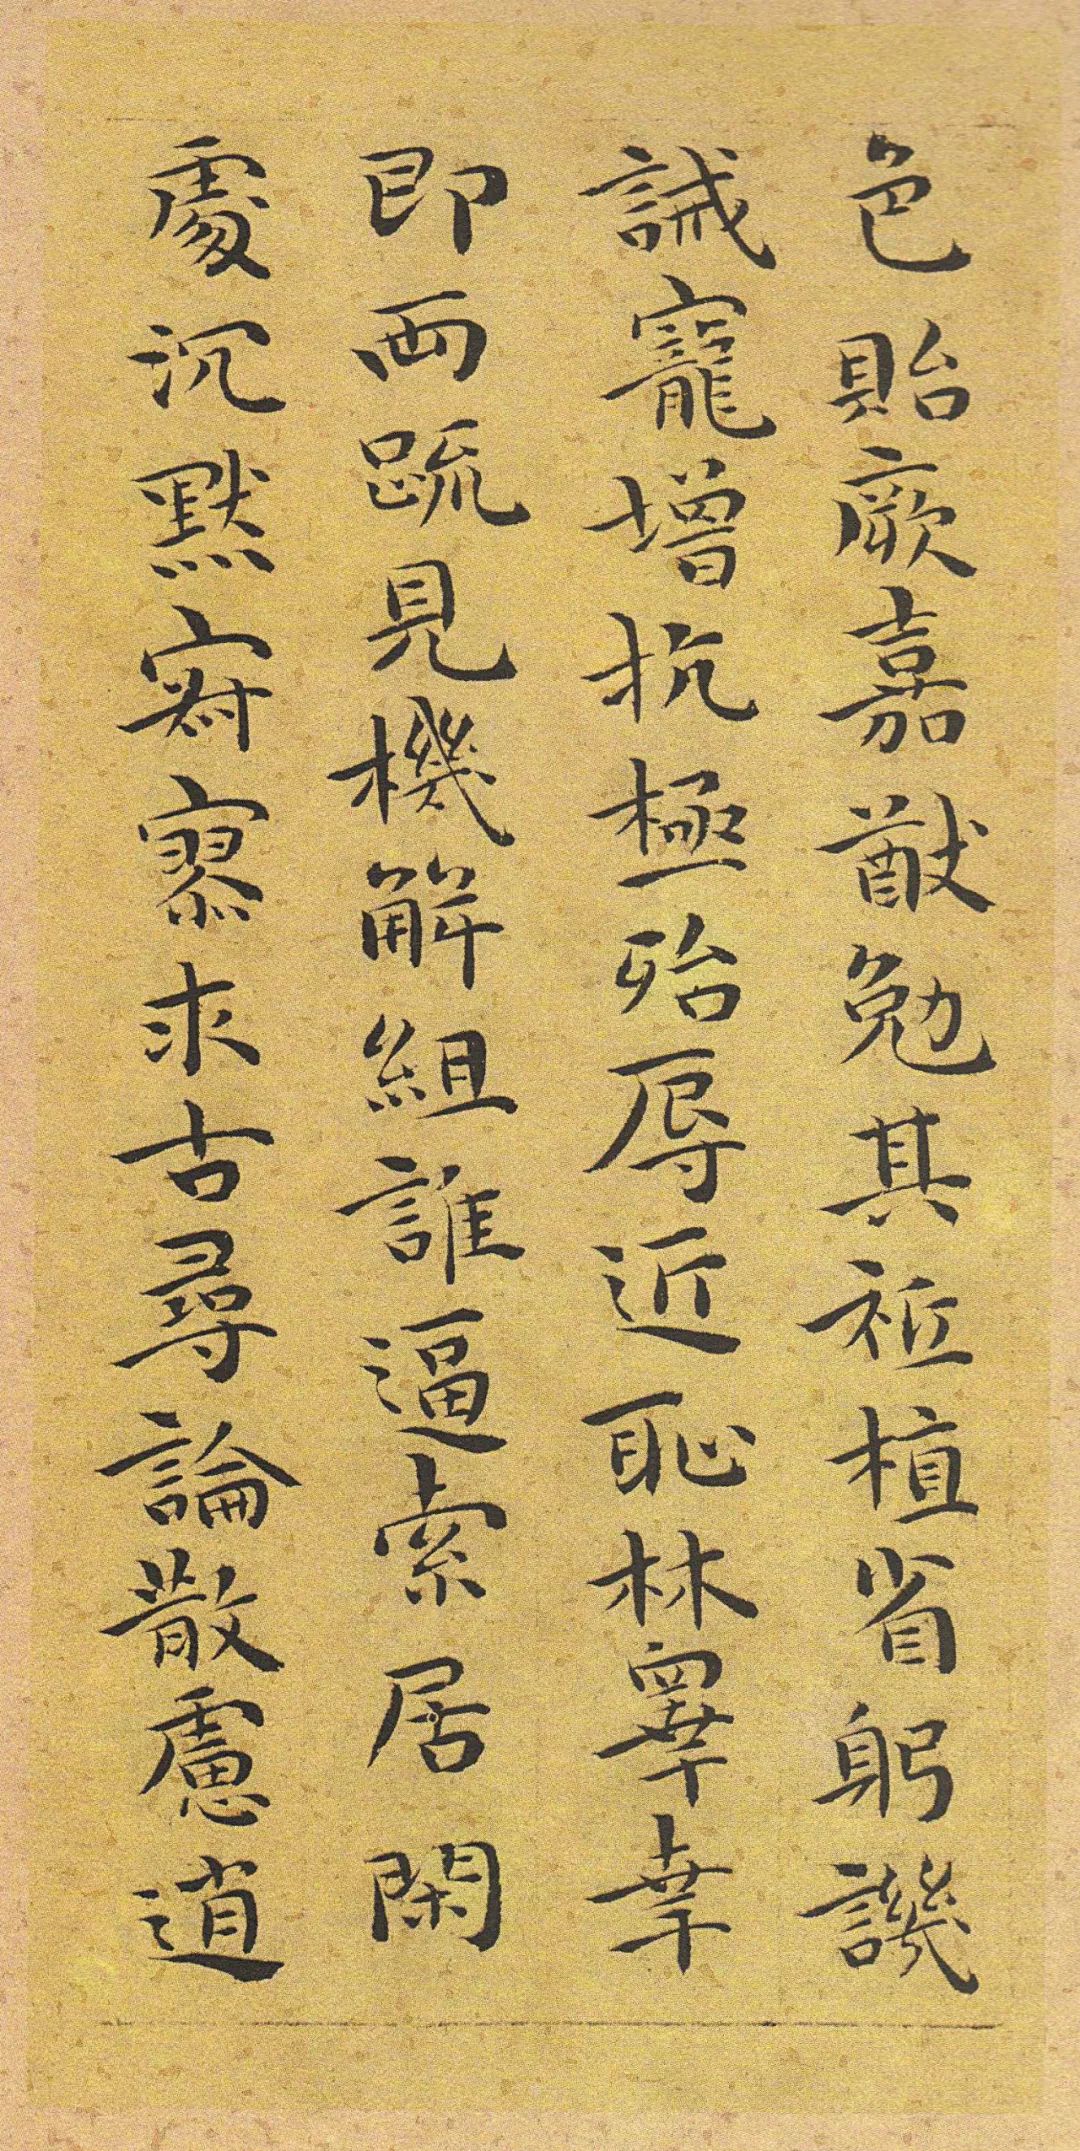 色貽厥嘉猷勉其祗植省躬譏
誡寵增抗極殆辱近恥林睾幸
即兩疏見機解組誰逼索居閑
處沉默寂寥求古尋論散慮逍